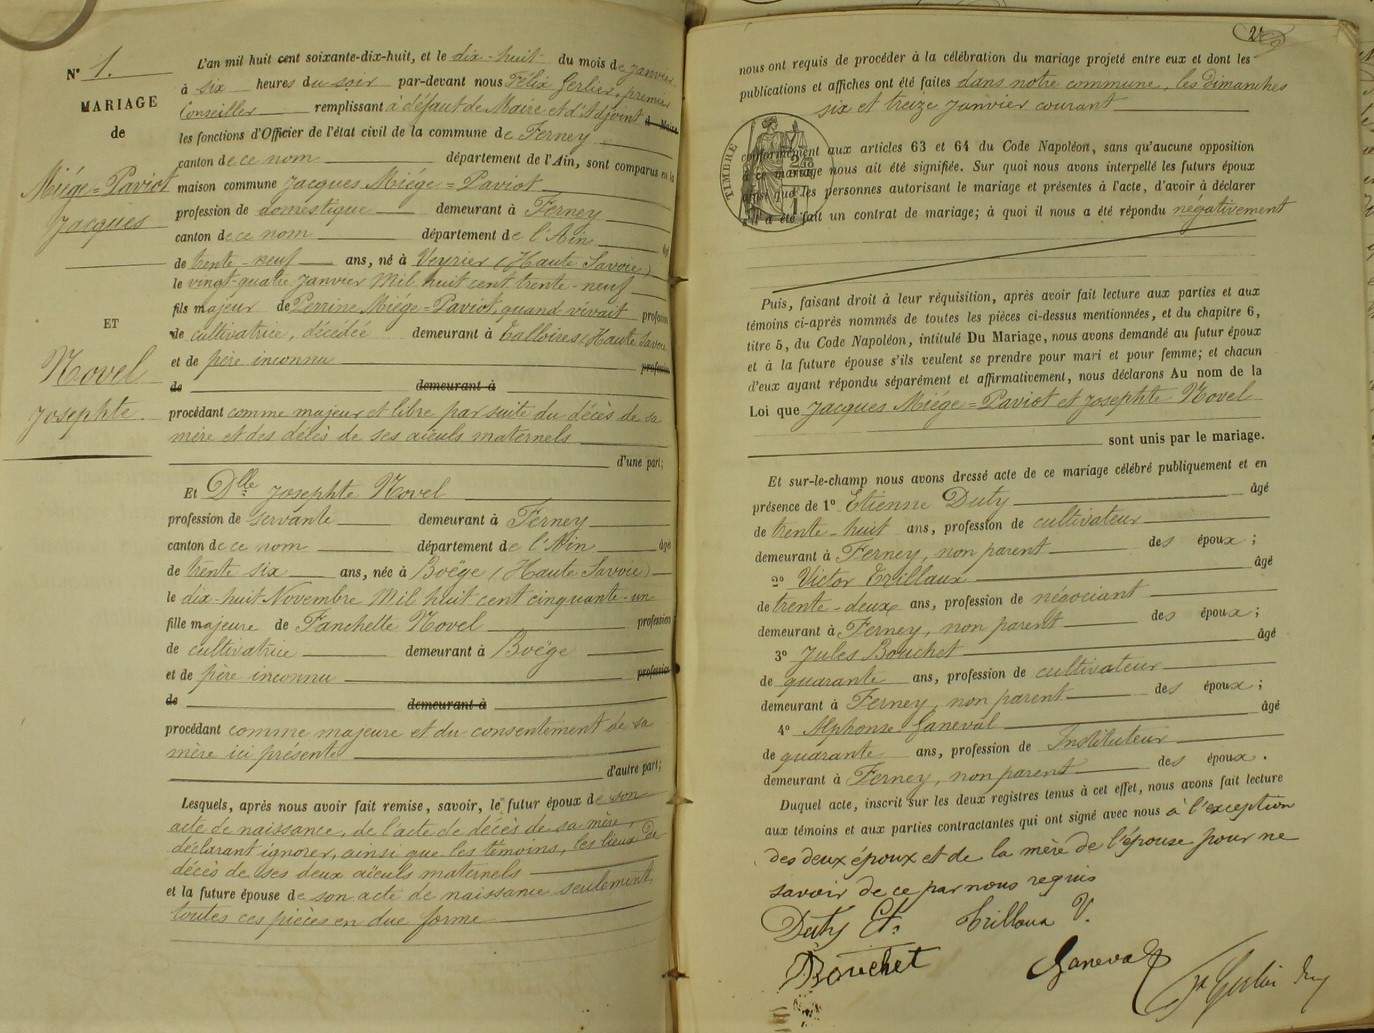 N° 1.
MARIAGE
de
Miége=Paviot
Jacques
ET
Novel
Josephte
L'an mil huit cent soixante-dix-huit, et le dix-huit du mois de Janvier
à six heures du soir par-devant nous Félix Gerlier, premier
Conseiller remplissant à défaut de Maire et d'Adjoint
les fonctions d'Officier de l'état civil de la commune de Ferney
canton de ce nom département de l'Ain, sont comparus en la
maison commune Jacques Miége=Paviot
profession de domestique demeurant à Ferney
canton de ce nom département de l'Ain âgé
de trente-neuf ans, né à Veyrier (Haute Savoie)
le vingt-quatre Janvier Mil huit cent trente-neuf
fils majeur de Perrine Miége=Paviot, quand vivait profession
de cultivatrice, décédée demeurant à Talloires (Haute Savoie
et de père inconnu profession
de demeurant à
procédant comme majeur et libre par suite du décès de sa
mère et des décès de ses aïeuls maternels
d'une part;
Et Dlle Josephte Novel
profession de servante demeurant à Ferney
canton de ce nom département de l'Ain âgé
de trente six ans, née à Boëge (Haute Savoie)
le dix-huit Novembre Mil huit cent cinquante-un
fille majeure de Fanchette Novel profession
de cultivatrice demeurant à Boëge
et de père inconnu profession
de demeurant à
procédant comme majeure et du consentement de sa
mère ici présente
d'autre part;
Lesquels, après nous avoir fait remise, savoir, le futur époux de son
acte de naissance, de l'acte de décès de sa mère,
déclarant ignorer, ainsi que les témoins, les lieux de
décès de ses deux aïeuls maternels
et la future épouse de son acte de naissance seulement
toutes ces pièces en due forme
2
nous ont requis de procéder à la célébration du mariage projeté entre eux et dont les
publications et affiches ont été faites dans notre commune, les Dimanches
six et treize Janvier courant
TIMBRE
conformément aux articles 63 et 64 du Code Napoléon, sans qu'aucune opposition
à ce mariage nous ait été signifiée. Sur quoi nous avons interpellé les futurs époux
ainsi que les personnes autorisant le mariage et présentes à l'acte, d'avoir à déclarer
s'il a été fait un contrat de mariage; à quoi il nous a été répondu négativement
Puis, faisant droit à leur réquisition, après avoir fait lecture aux parties et aux
témoins ci-après nommés de toutes les pièces ci-dessus mentionnées, et du chapitre 6,
titre 5, du Code Napoléon, intitulé Du Mariage, nous avons demandé au futur époux
et à la future épouse s'ils veulent se prendre pour mari et pour femme; et chacun
d'eux ayant répondu séparément et affirmativement, nous déclarons Au nom de la
Loi que Jacques Miége=Paviot et Josephte Novel
sont unis par le mariage.
Et sur-le-champ nous avons dressé acte de ce mariage célébré publiquement et en
présence de 1° Etienne Duty âgé
de trente-huit ans, profession de cultivateur
demeurant à Ferney, non parent des époux;
2° Victor Trillaux âgé
de trente-deux ans, profession de négociant
demeurant à Ferney, non parent des époux;
3° Jules Bouchet âgé
de quarante ans, profession de cultivateur
demeurant à Ferney, non parent des époux;
4° Alphonse Ganeval âgé
de quarante ans, profession de Instituteur
demeurant à Ferney, non parent des époux.
Duquel acte, inscrit sur les deux registres tenus à cet effet, nous avons fait lecture
aux témoins et aux parties contractantes qui ont signé avec nous à l'exception
des deux époux et de la mère de l'épouse pour ne
savoir de ce par nous requis
Duty Et. Trilloux V.
Bouchet Ganeval